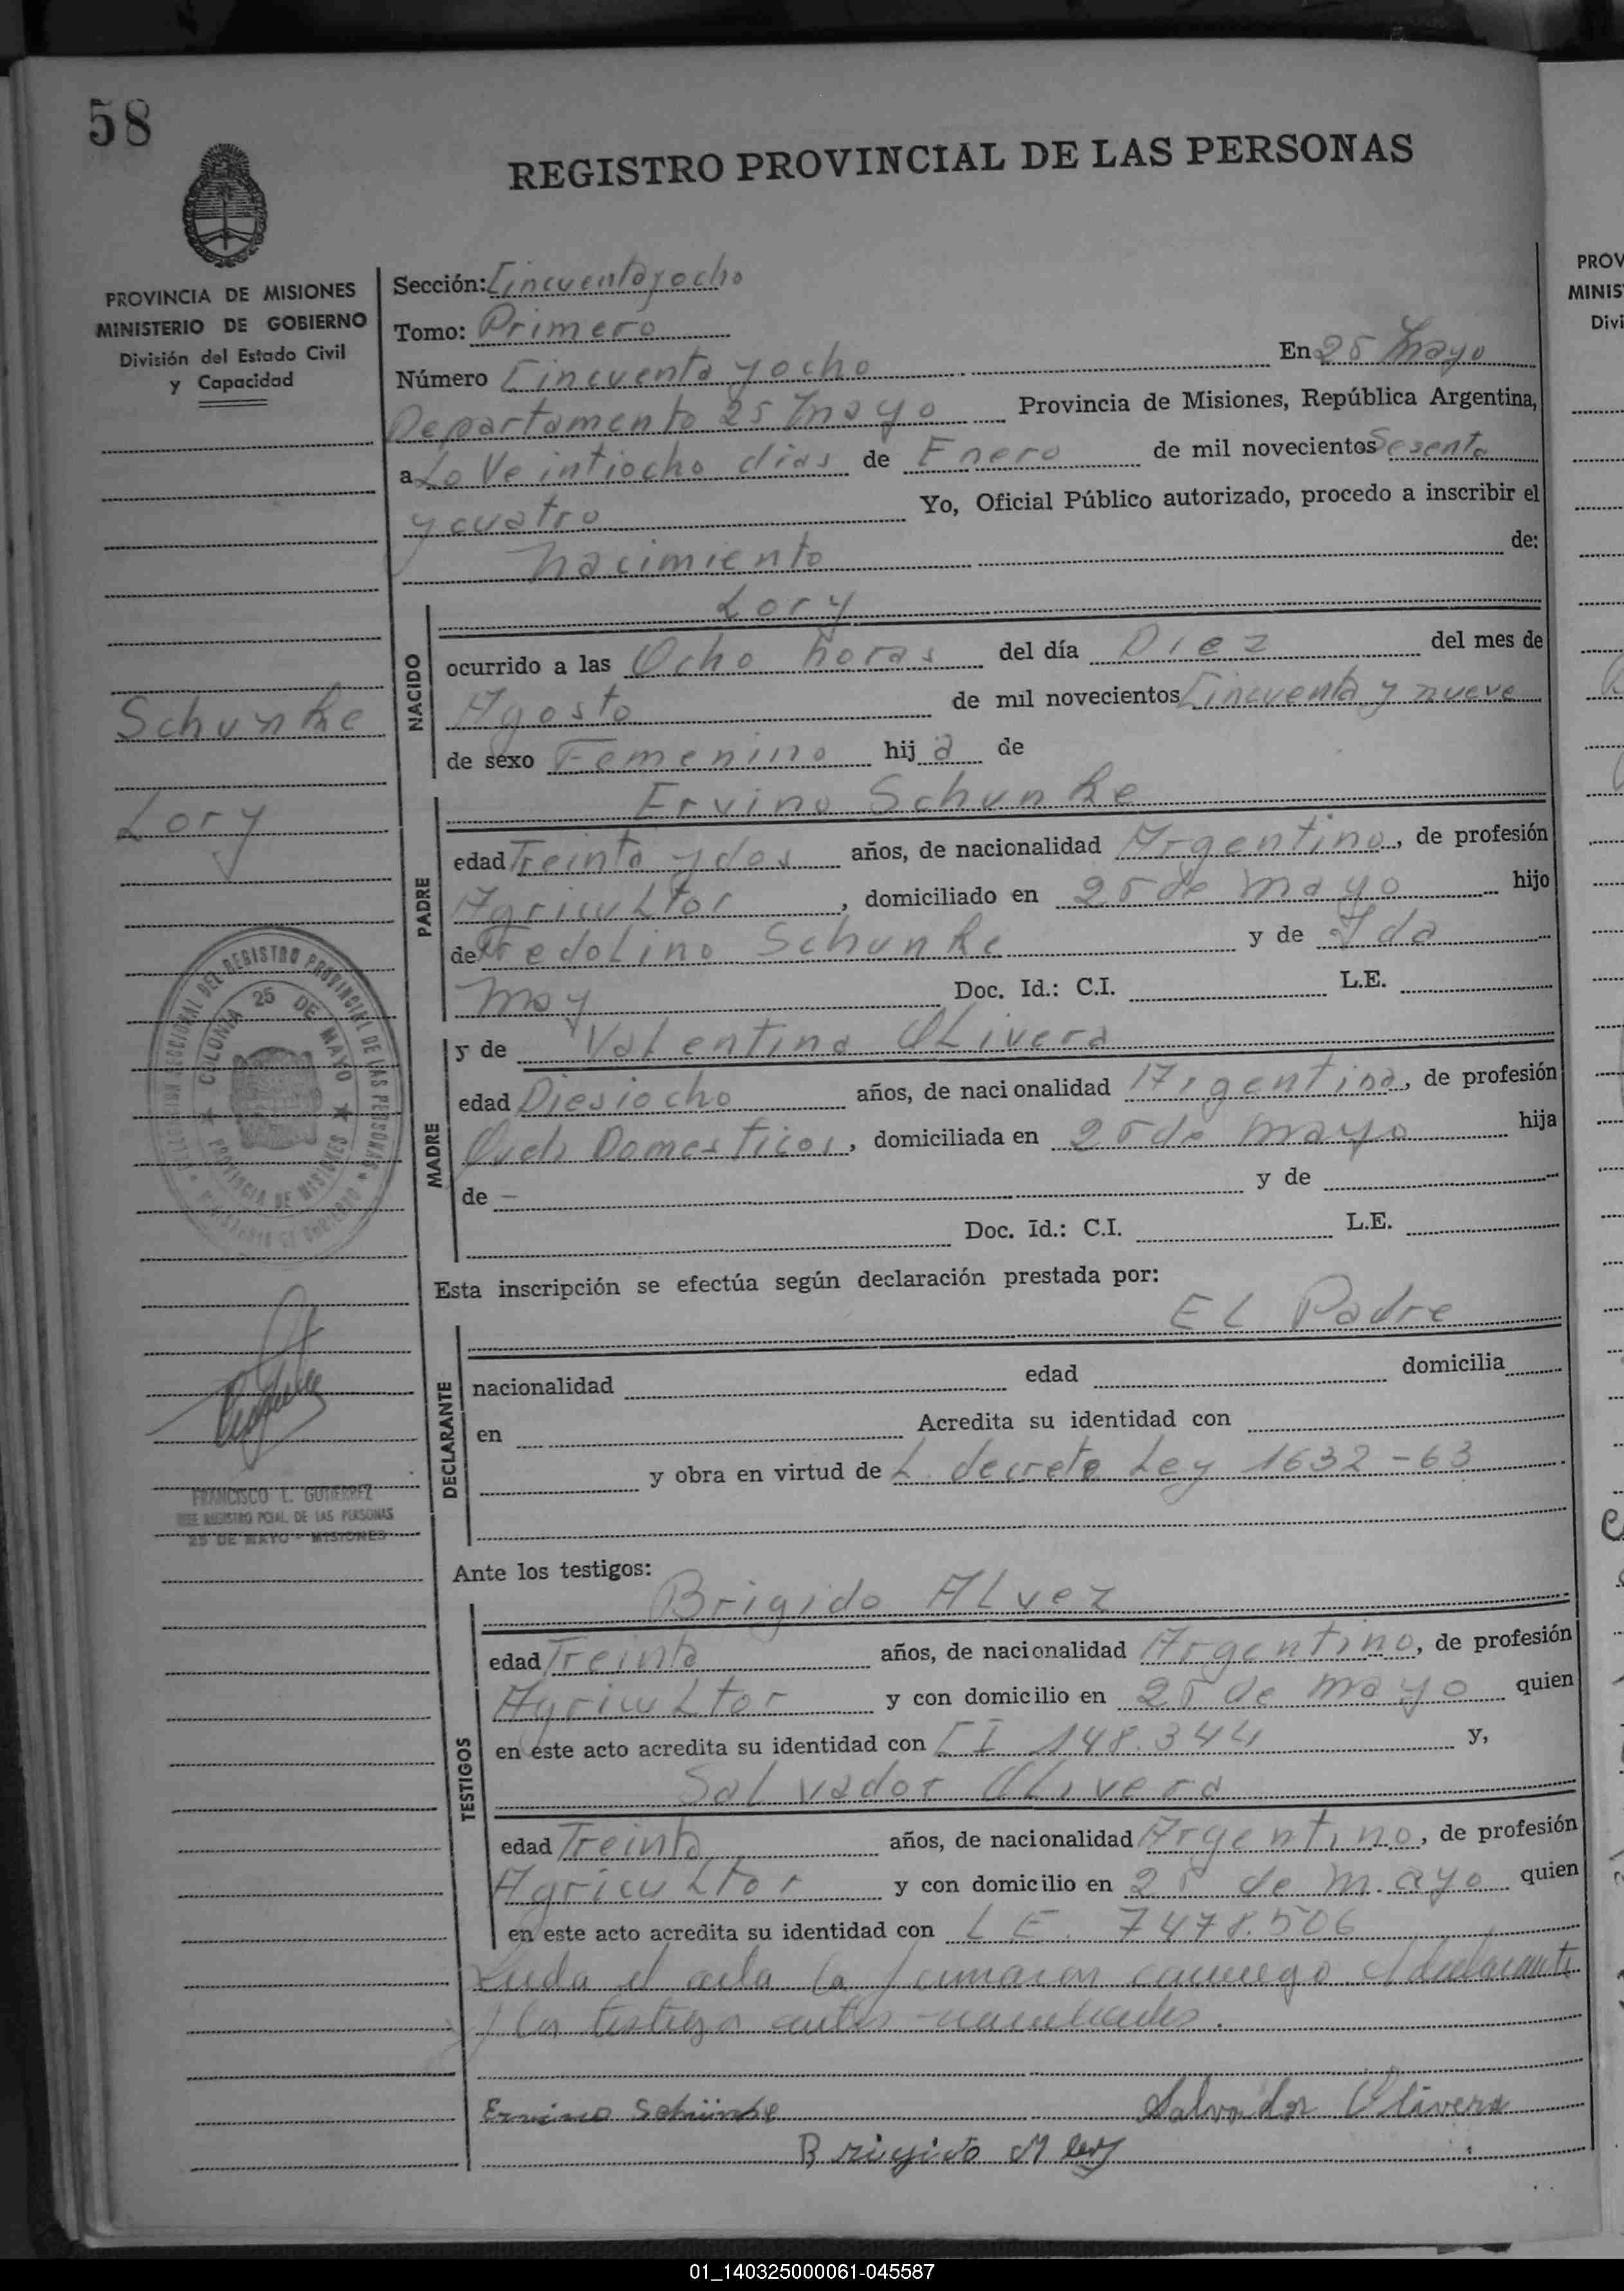 58
REGISTRO PROVINCIAL DE LAS PERSONAS
PROVINCIA DE MISIONES
MINISTERIO DE GOBIERNO
División del Estado Civil
y Capacidad
Schunke
Lory
COLONIA 25 DE MAYO
PROVINCIA DE MISIONES
FRANCISCO L. GUTIERREZ
JEFE REGISTRO PCIAL. DE LAS PERSONAS
25 DE MAYO - MISIONES
Sección: Cincuentayocho
Tomo: Primero
Número Cincuenta y ocho En 25 Mayo
Departamento 25 Mayo Provincia de Misiones, República Argentina,
a Lo Veintiocho dias de Enero de mil novecientos Sesenta
y cuatro Yo, Oficial Público autorizado, procedo a inscribir el
Nacimiento de:
NACIDO
Lory
ocurrido a las Ocho horas del día Diez del mes de
Agosto de mil novecientos Cincuenta y nueve
de sexo Femenino hija de
PADRE
Ervino Schunke
edad Treinta y dos años, de nacionalidad Argentino, de profesión
Agricultor, domiciliado en 25 de mayo hijo
de Fredolino Schunke y de Ida
May Doc. Id.: C.I. L.E.
MADRE
y de Valentina Olivera
edad Diesiocho años, de nacionalidad Argentina, de profesión
Queh Domesticos, domiciliada en 25 de mayo hija
de - y de
Doc. Id.: C.I. L.E.
Esta inscripción se efectúa según declaración prestada por:
DECLARANTE
El Padre
nacionalidad edad domicilia
en Acredita su identidad con
y obra en virtud de L. decreto Ley 1632-63
Ante los testigos:
TESTIGOS
Brigido Alvez
edad Treinta años, de nacionalidad Argentino, de profesión
Agricultor y con domicilio en 25 de mayo quien
en este acto acredita su identidad con CI 148.344 y,
Salvador Olivera
edad Treinta años, de nacionalidad Argentino, de profesión
Agricultor y con domicilio en 25 de mayo quien
en este acto acredita su identidad con L E. 7478.506
el acta la firmaron conmigo el declarante
y los testigos antes
Ervino Schünke Salvador Olivera
Brigido
PROV
MINIS
Divi
01_140325000061-045587